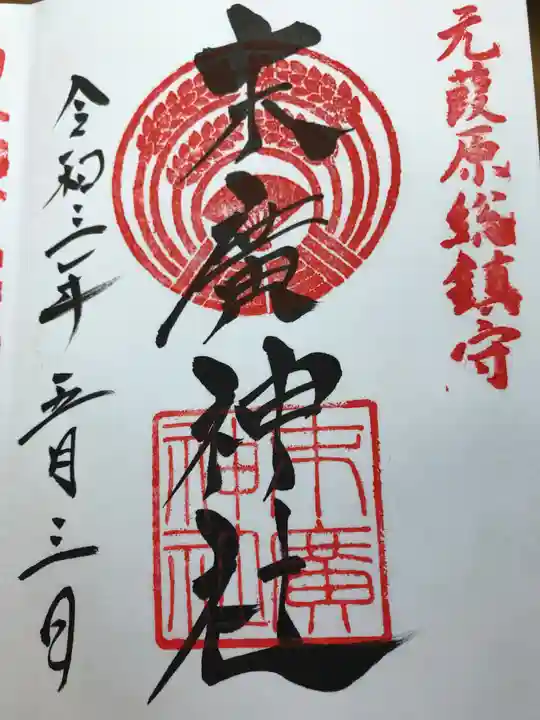 元葭原総鎮守
末廣神社
末廣神社
令和三年五月三日